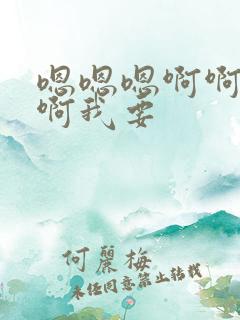 嗯嗯嗯啊啊
啊我要
何丽梅
未经同意禁止转载